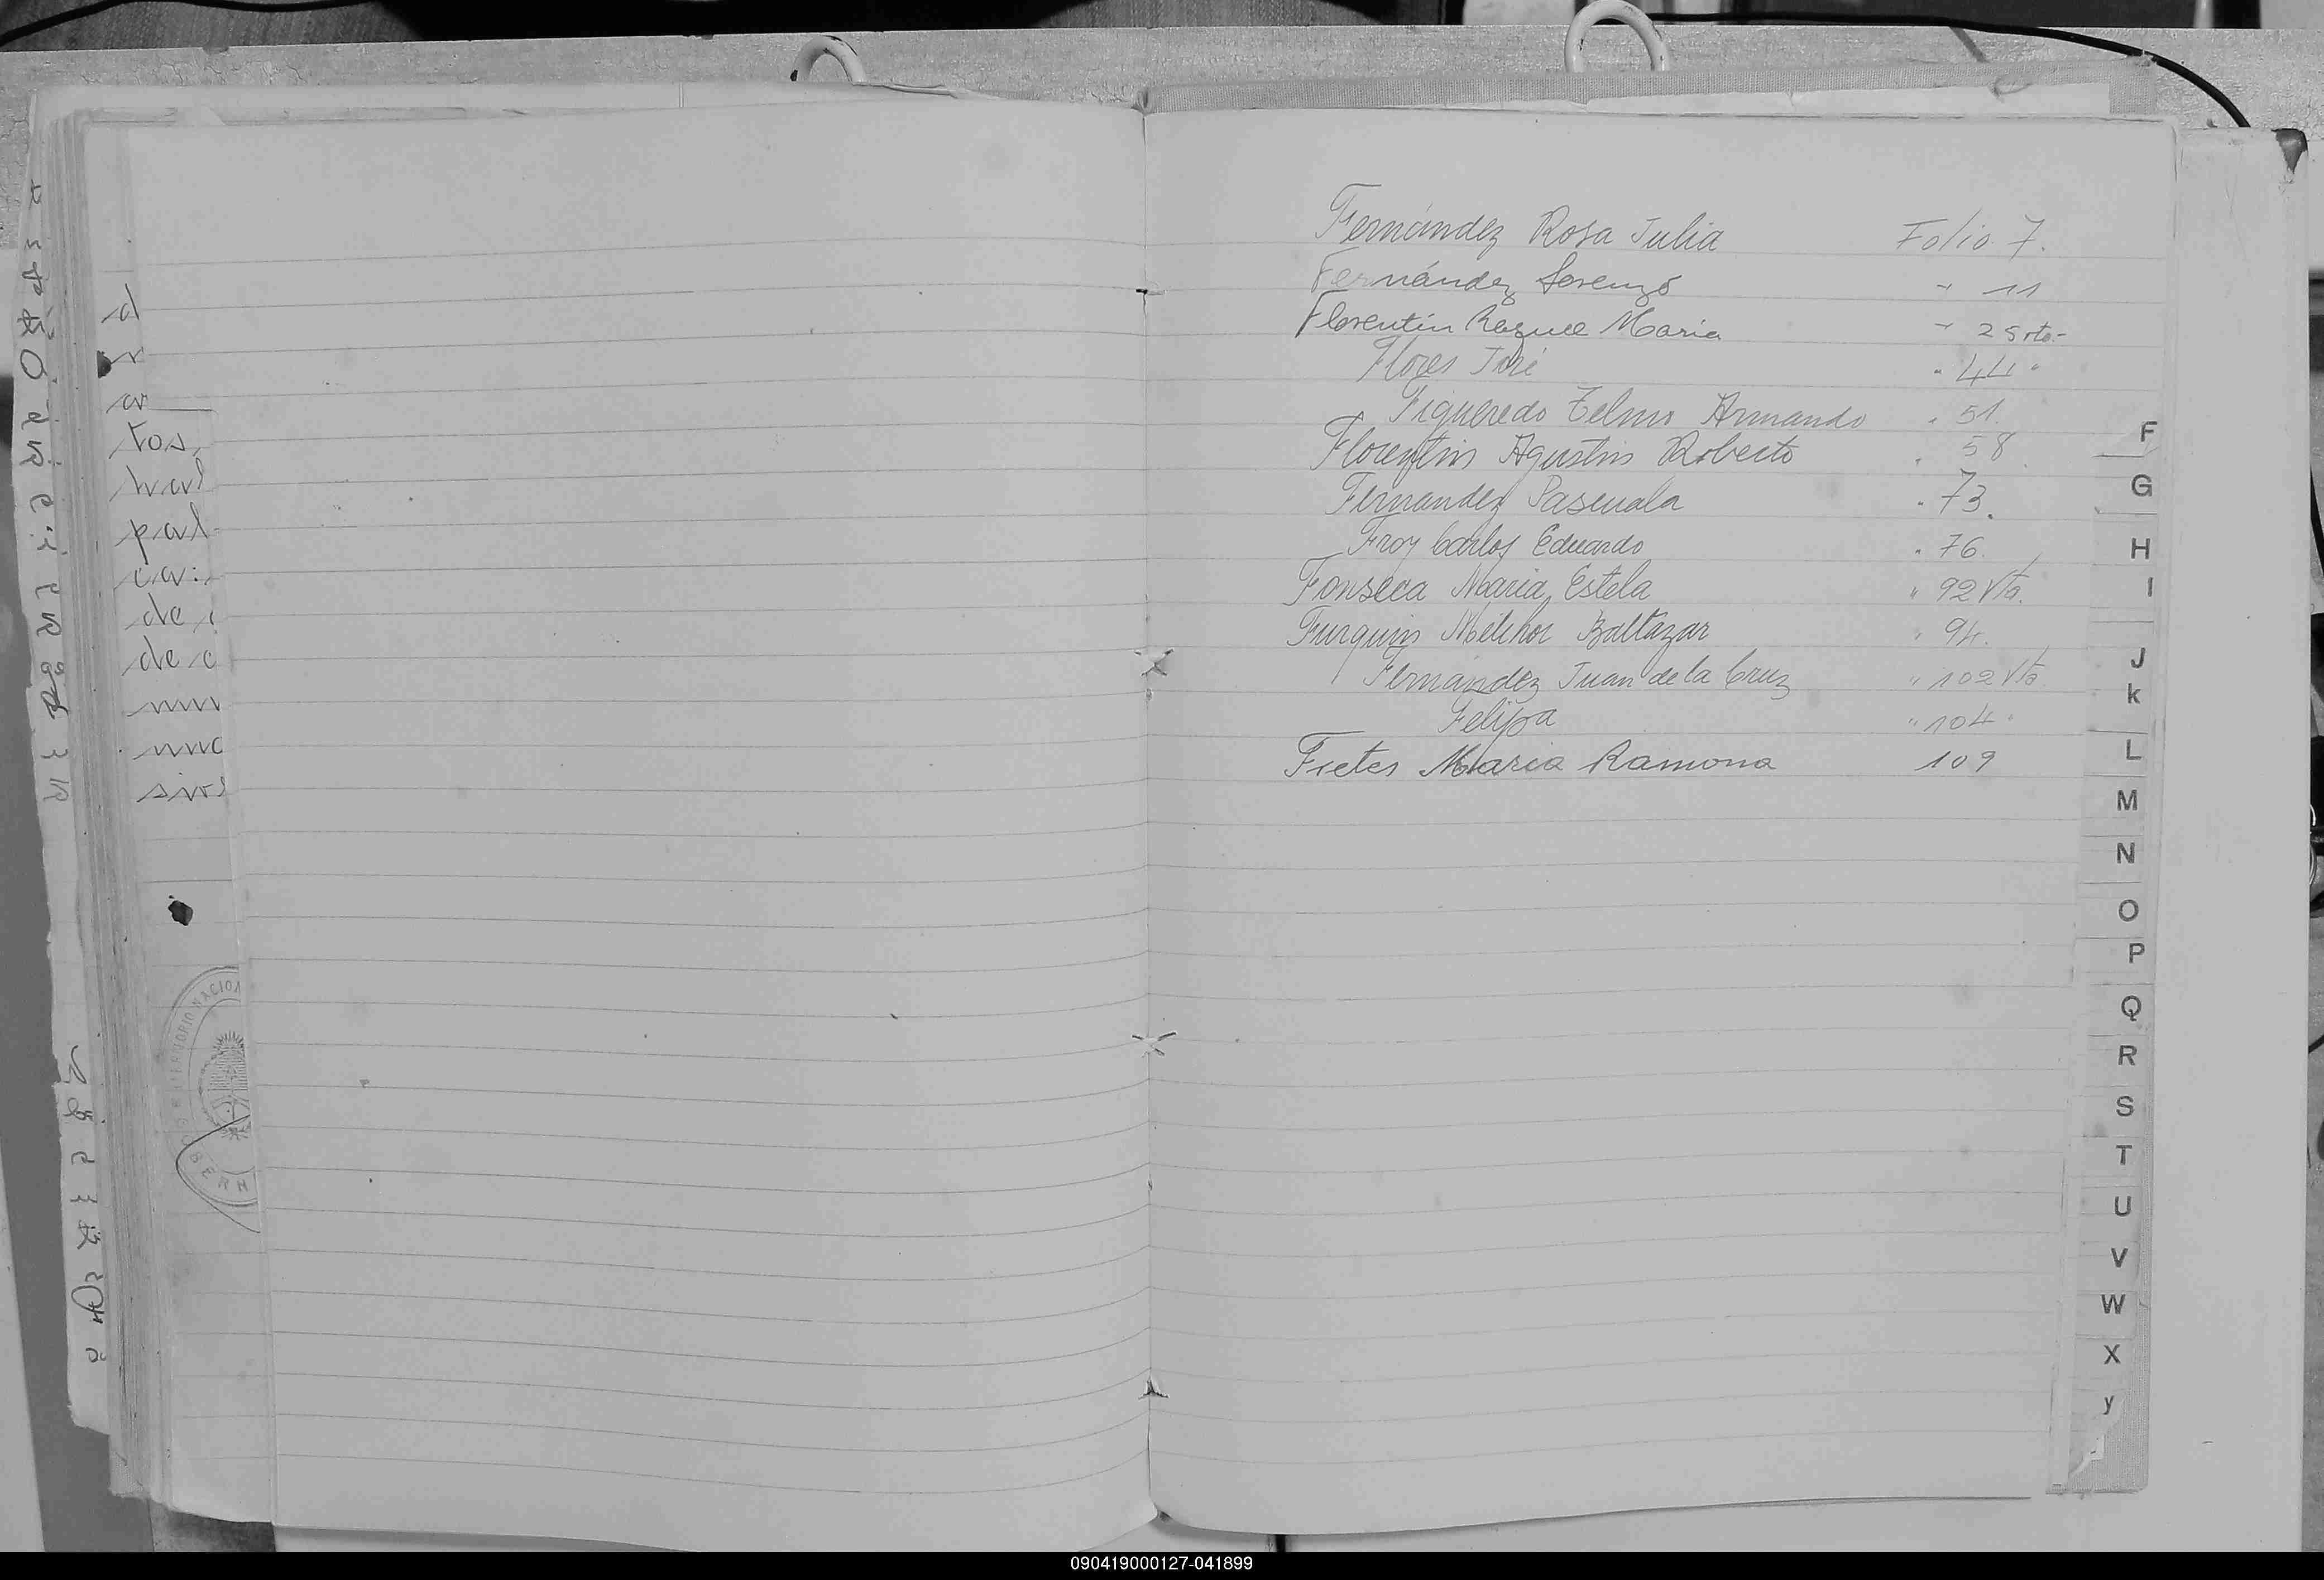 Fernández Rosa Julia Folio 7.
Fernández Lorenzo " 11
Florentin Raquel Maria " 25 vto.-
Flores José " 44 "
Figueredo Telmo Armando " 51.
Florentin Agustin Roberto " 58
Fernandez Pascuala " 73.
Froy Carlos Eduardo " 76.
Fonseca Maria Estela " 92 Vta.
Furquin Melchor Baltazar " 94.
Fernández Juan de la Cruz " 102 Vta
Felipa " 104 "
Fietes Maria Ramona 109
F
G
H
I
J
k
L
M
N
O
P
Q
R
S
T
U
V
W
X
y
tos,
pal
de
de c
GOBERN
TERRITORIO NACION
090419000127-041899